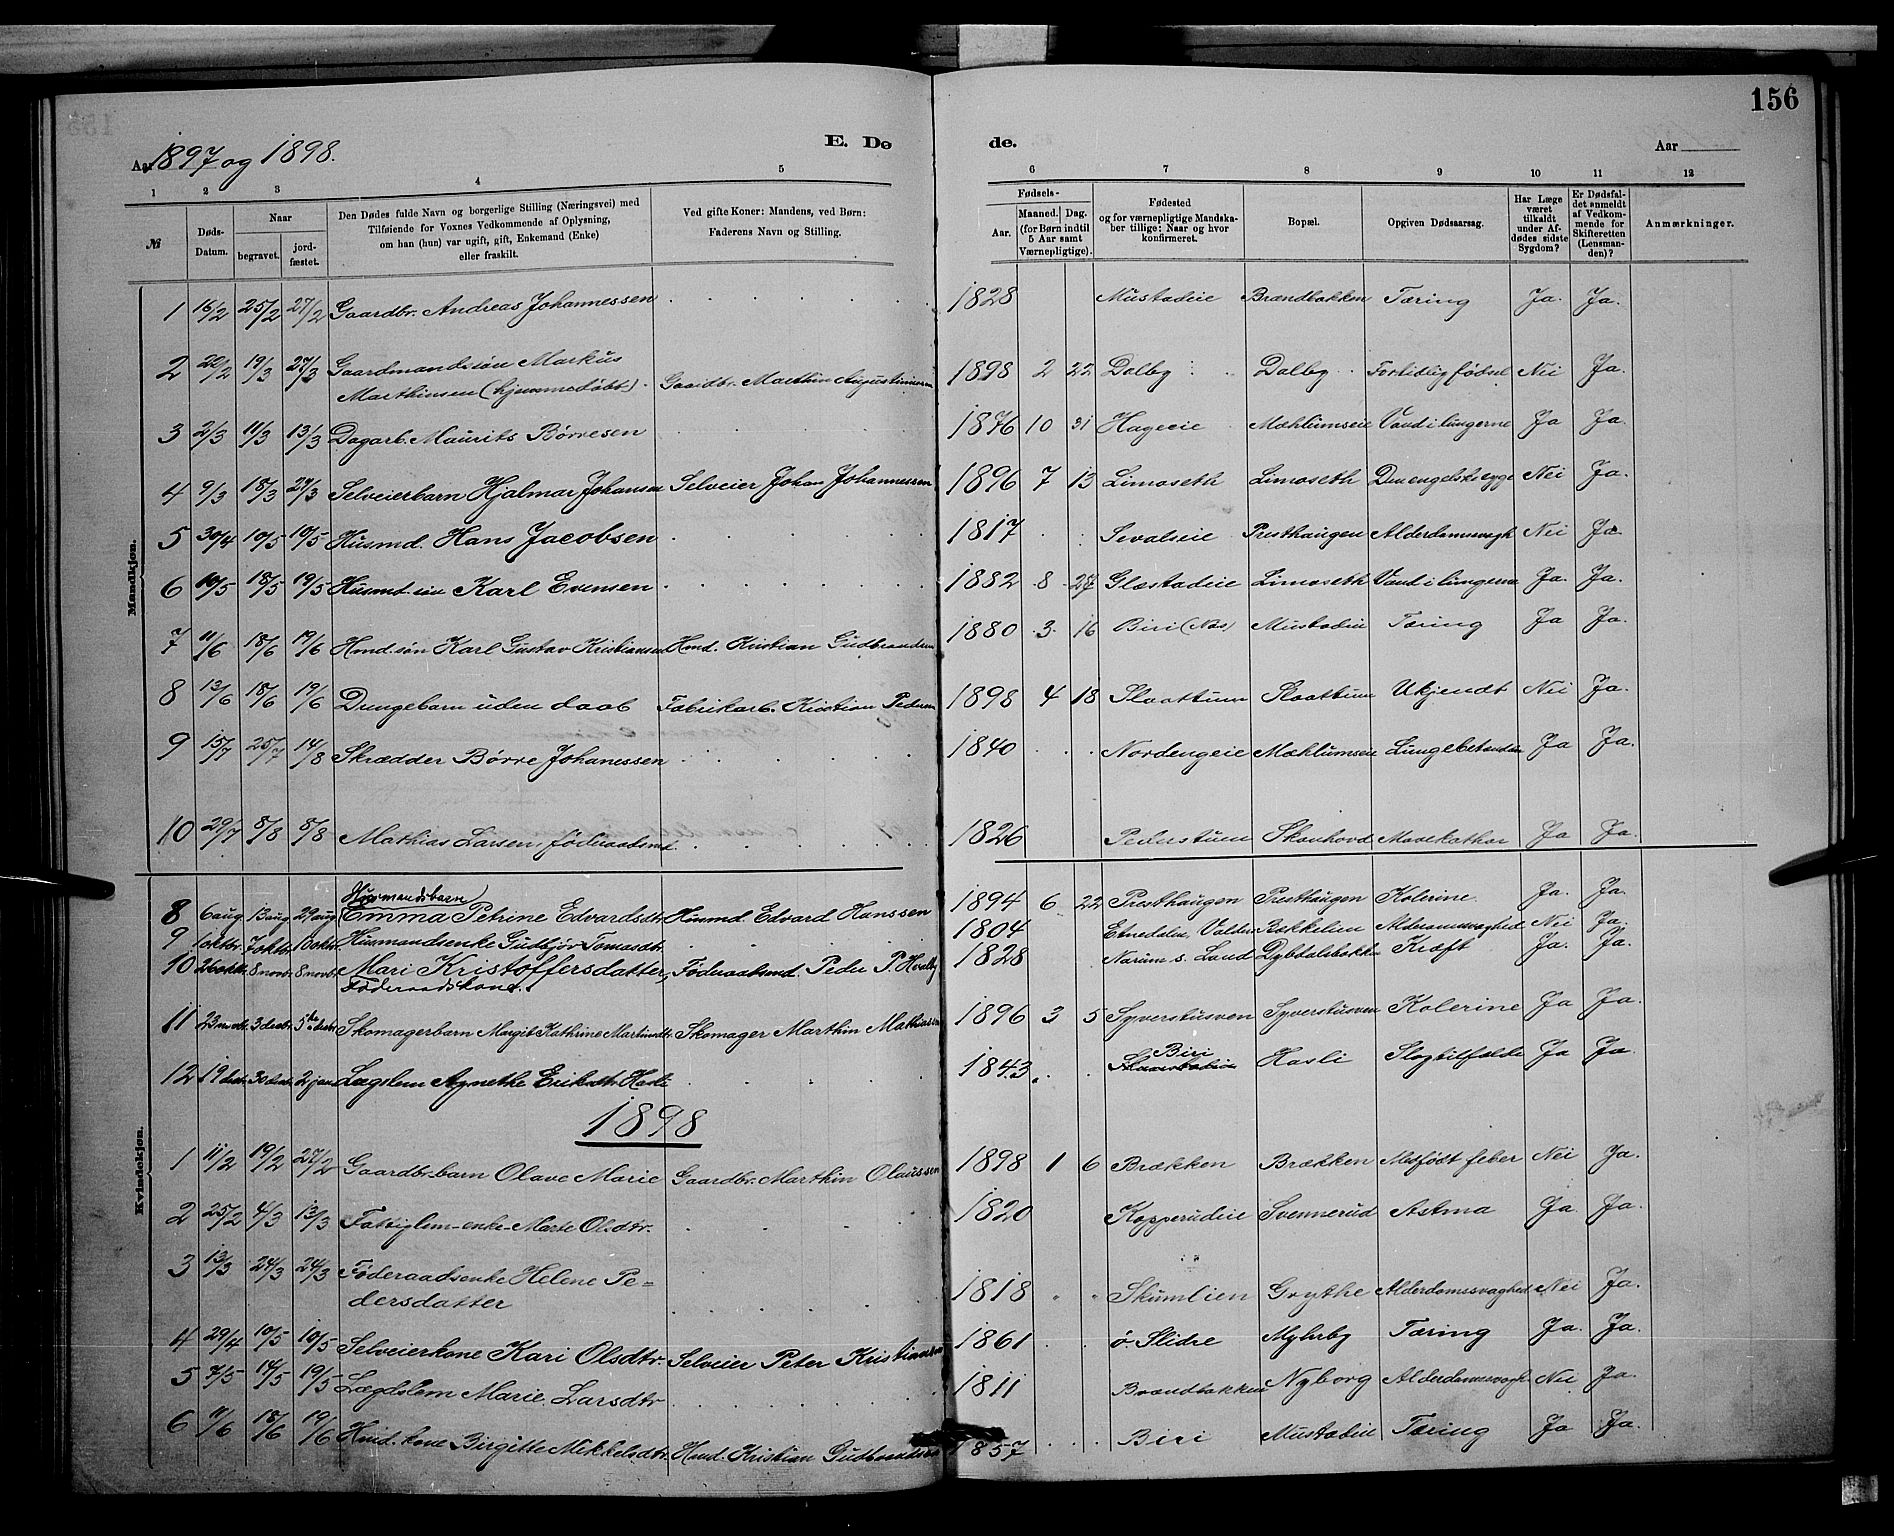 156
Aar 1897 og 1898.
E. Dø
de.
Aar
1 2 3 4 5 6 7 8 9 10 11 12
№
Døds-Datum.
Naar
begravet.
jordfæstet.
Den Dødes fulde Navn og borgerlige Stilling (Næringsvei) med
Tilføiende for Voxnes Vedkommende af Oplysning,
om han (hun) var ugift, gift, Enkemand (Enke)
eller fraskilt.
Ved gifte Koner: Mandens, ved Børn:
Faderens Navn og Stilling.
Fødsels-
Aar.
Maaned. Dag.
(for Børn indtil
5 Aar samt
Værnepligtige).
Fødested
og for værnepligtige Mandska-
ber tillige: Naar og hvor
konfirmeret.
Bopæl.
Opgiven Dødsaarsag.
Har Læge
været
tilkaldt
under Af-
dødes sidste
Sygdom?
Er Dødsfal-
det anmeldt
af Vedkom-
mende for
Skifteretten
(Lensman-
den)?
Anmærkninger.
Mandkjøn.
1 16/2 25/2 27/2 Gaardbr. Andreas Johannessen 1828 Mustadeie Brandbakken Tæring Ja. Ja.
2 22/2 19/3 27/3 Gaardmandssøn Markus
Marthinsen (hjemmedøbt) Gaardbr. Marthin Augustinussen 1898 2 22 Dalby Dalby Fortidlig fødsel Nei Ja.
3 2/3 11/3 13/3 Dagarb. Maurits Børresen 1876 10 31 Hageeie Mæhlumseie Vand i lungerne Ja Ja.
4 9/3 18/3 27/3 Selveierbarn Hjalmar Johansen Selveier Johan Johannessen 1896 7 13 Limoseth Limoseth Den engelske syge Nei Ja.
5 30/4 10/5 10/5 Husmd. Hans Jacobsen 1817 Sevalseie Presthaugen Alderdomssvagh Nei Ja
6 10/5 18/5 19/5 Husmd. søn Karl Evensen 1882 8 27 Glæstadeie Limoseth Vand i lungerne Ja. Ja.
7 11/6 18/6 19/6 Hmd. søn Karl Gustav Kristiansen Hmd. Kristian Gudbrandsen 1880 3 16 Biri (Næs) Mustadeie Tæring Ja Ja.
8 13/6 18/6 19/6 Drengebarn uden daab Fabrikarb. Kristian Pedersen 1898 4 18 Slaattum Slaattum Ukjendt Nei Ja.
9 15/7 25/7 14/8 Skrædder Børre Johanessen 1840 Nordengeie Mæhlumseie Lungebetændelse Ja Ja.
10 29/7 8/8 8/8 Mathias Larsen, føderaadsmd. 1826 Pederstuen Skonhovd Mavekathar Ja Ja.
Kvindekjøn.
Husmandsbarn
8 6 aug. 13 aug 29 aug Emma Petrine Edvardsdtr. Husmd. Edvard Hanssen 1894 6 22 Presthaugen Presthaugen Kolerine. Ja. Ja.
9 1 oktbr. 7 oktbr 10 oktbr Husmandsenke Gudbjør Tomasdtr. 1804 Etnedalen, Valders Bækkelien Alderdomssvaghed Nei Ja.
10 26 oktbr. 8 novbr. 8 novbr. Mari Kristoffersdatter, Føderaadsmd. Peder P. Hvalby 1828 s. Land Dybdalsbakken Kræft Ja. Ja.
Føderaadskone.
11 23 novbr. 3 desbr. 5te desbr. Skomagerbarn Margit Kathrine Martinsdtr. Skomager Marthin Mathiassen 1896 3 5 Syverstusveen Syverstusveen Kolerine Ja Ja.
12 19 desbr. 30 desbr. 2 jan. Lægslem Agnethe Eriksdtr. Hasli 1843 Biri Hasli Slagtilfælde Ja Ja.
1898
1 11/2 19/2 27/2 Gaardbr. barn Olave Marie Gaardbr. Marthin Olaussen 1898 1 6 Brækken Brækken Medfødt feber Nei Ja.
2 25/2 4/3 13/3 Fattiglem-enke Marte Olsdtr. 1820 Kopperudeie Svennerud Astma Ja. Ja.
3 13/3 24/3 24/3 Føderaadsenke Helene Pe-
dersdatter 1818 Skumlien Grythe Alderdomssvaghed Nei Ja.
4 29/4 10/5 10/5 Selveierkone Kari Olsdtr. Selveier Peter Kristiansen 1861 ø. Slidre Myhrby Tæring Ja. Ja.
5 7/5 14/5 19/5 Lægdslem Marie Larsdtr 1811 Brandbakken Nyborg Alderdomssvagh Nei Ja.
6 11/6 18/6 19/6 Hmd. kone Birgitte Mikkelsdtr. Hmd. Kristian Gudbrandsen 1857 Biri Mustadeie Tæring Ja Ja.